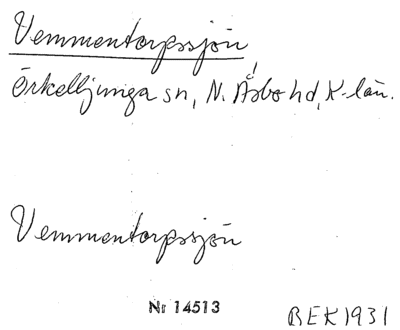 Vemmentorpssjön,
Örkelljunga sn, N. Åsbo hd, K-län.
Vemmentorpssjön
Nr 14513
BEK 1931